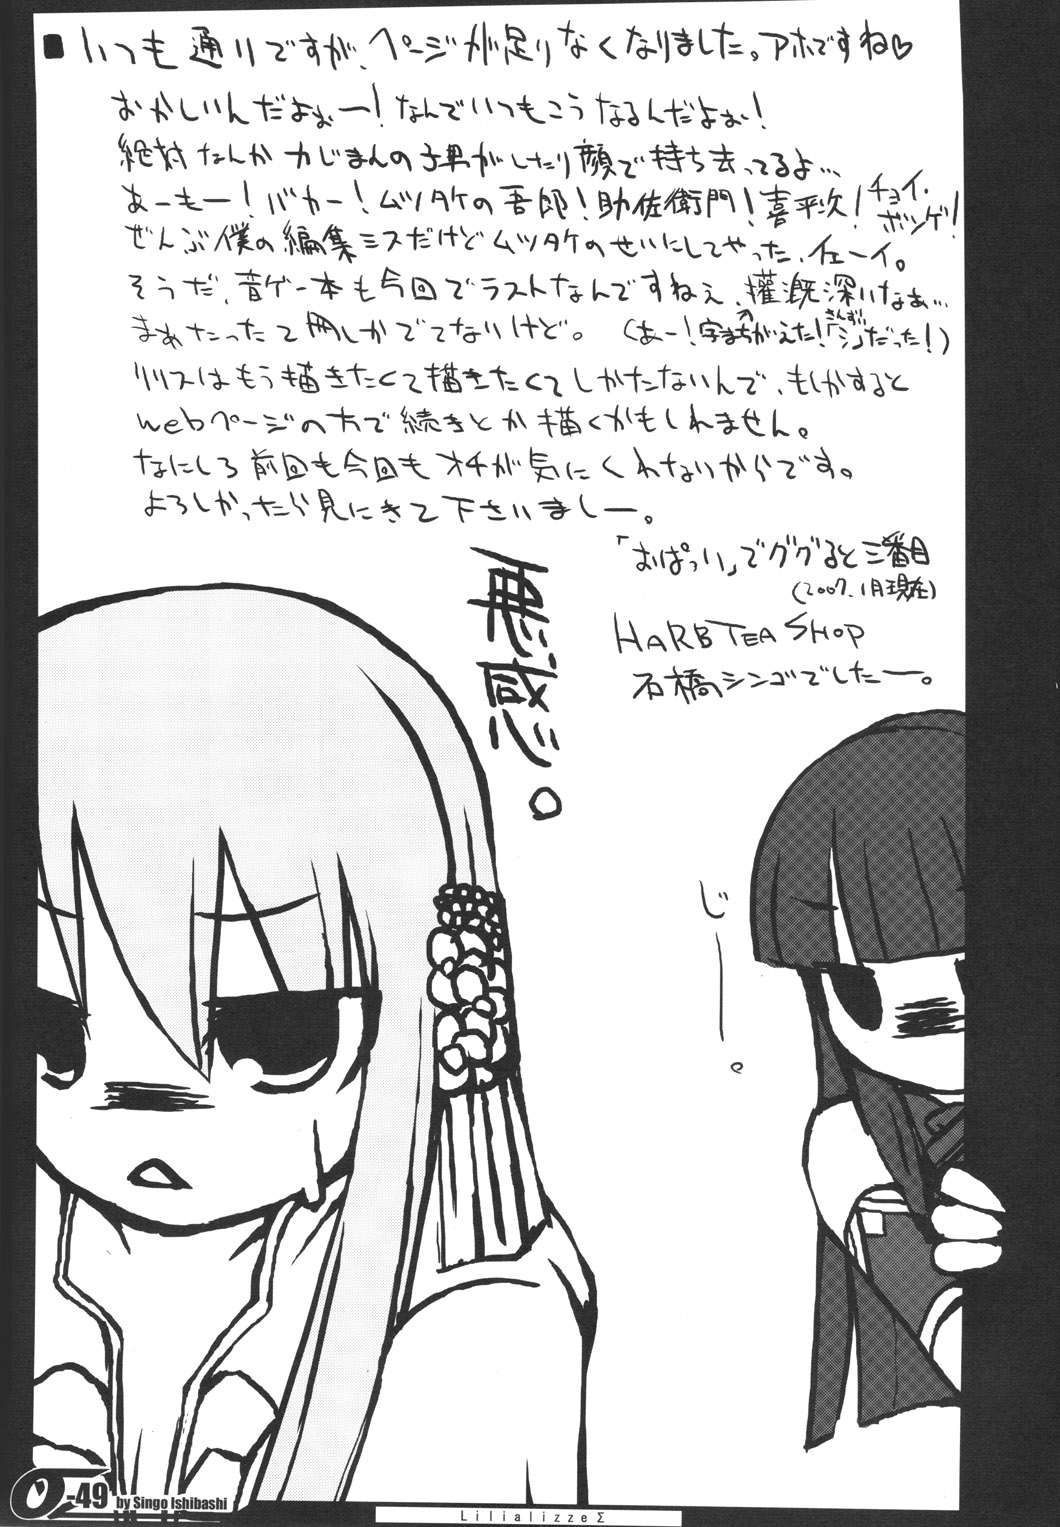 ■いつも通りですが、ページが足りなくなりました。アホですね♡
おかしいんだよぉー!なんでいつもこうなるんだよぉ!
絶対なんかカじまんの子男がしたり顔で持ち去ってるよ…
あーもー!バカー!ムツタケの吾郎!助佐衛門!喜平次!チョイ・ボンゲ!
ぜんぶ僕の編集ミスだけどムツタケのせいにしてやった、イェーイ。
そうだ、音ゲー本も今回でラストなんですねぇ、灌漑深いなぁ…
まぁたったて冊しかでてないけど。(あー!字まちがえた!「シ」だった!)
さんずい
リリスはもう描きたくて描きたくてしかたないんで、もしかすると
webページの方で続きとか描くかもしれません。
なにしろ前回も今回もオチが気にくわないからです。
よろしかったら見にきて下さいましー。
「おぱっい」でググると三番目
(2007.1月現在)
HARB TEA SHOP
石橋シンゴでしたー。
悪感ジ。
じー。
-49
by Singo Ishibashi
LilializzeΣ